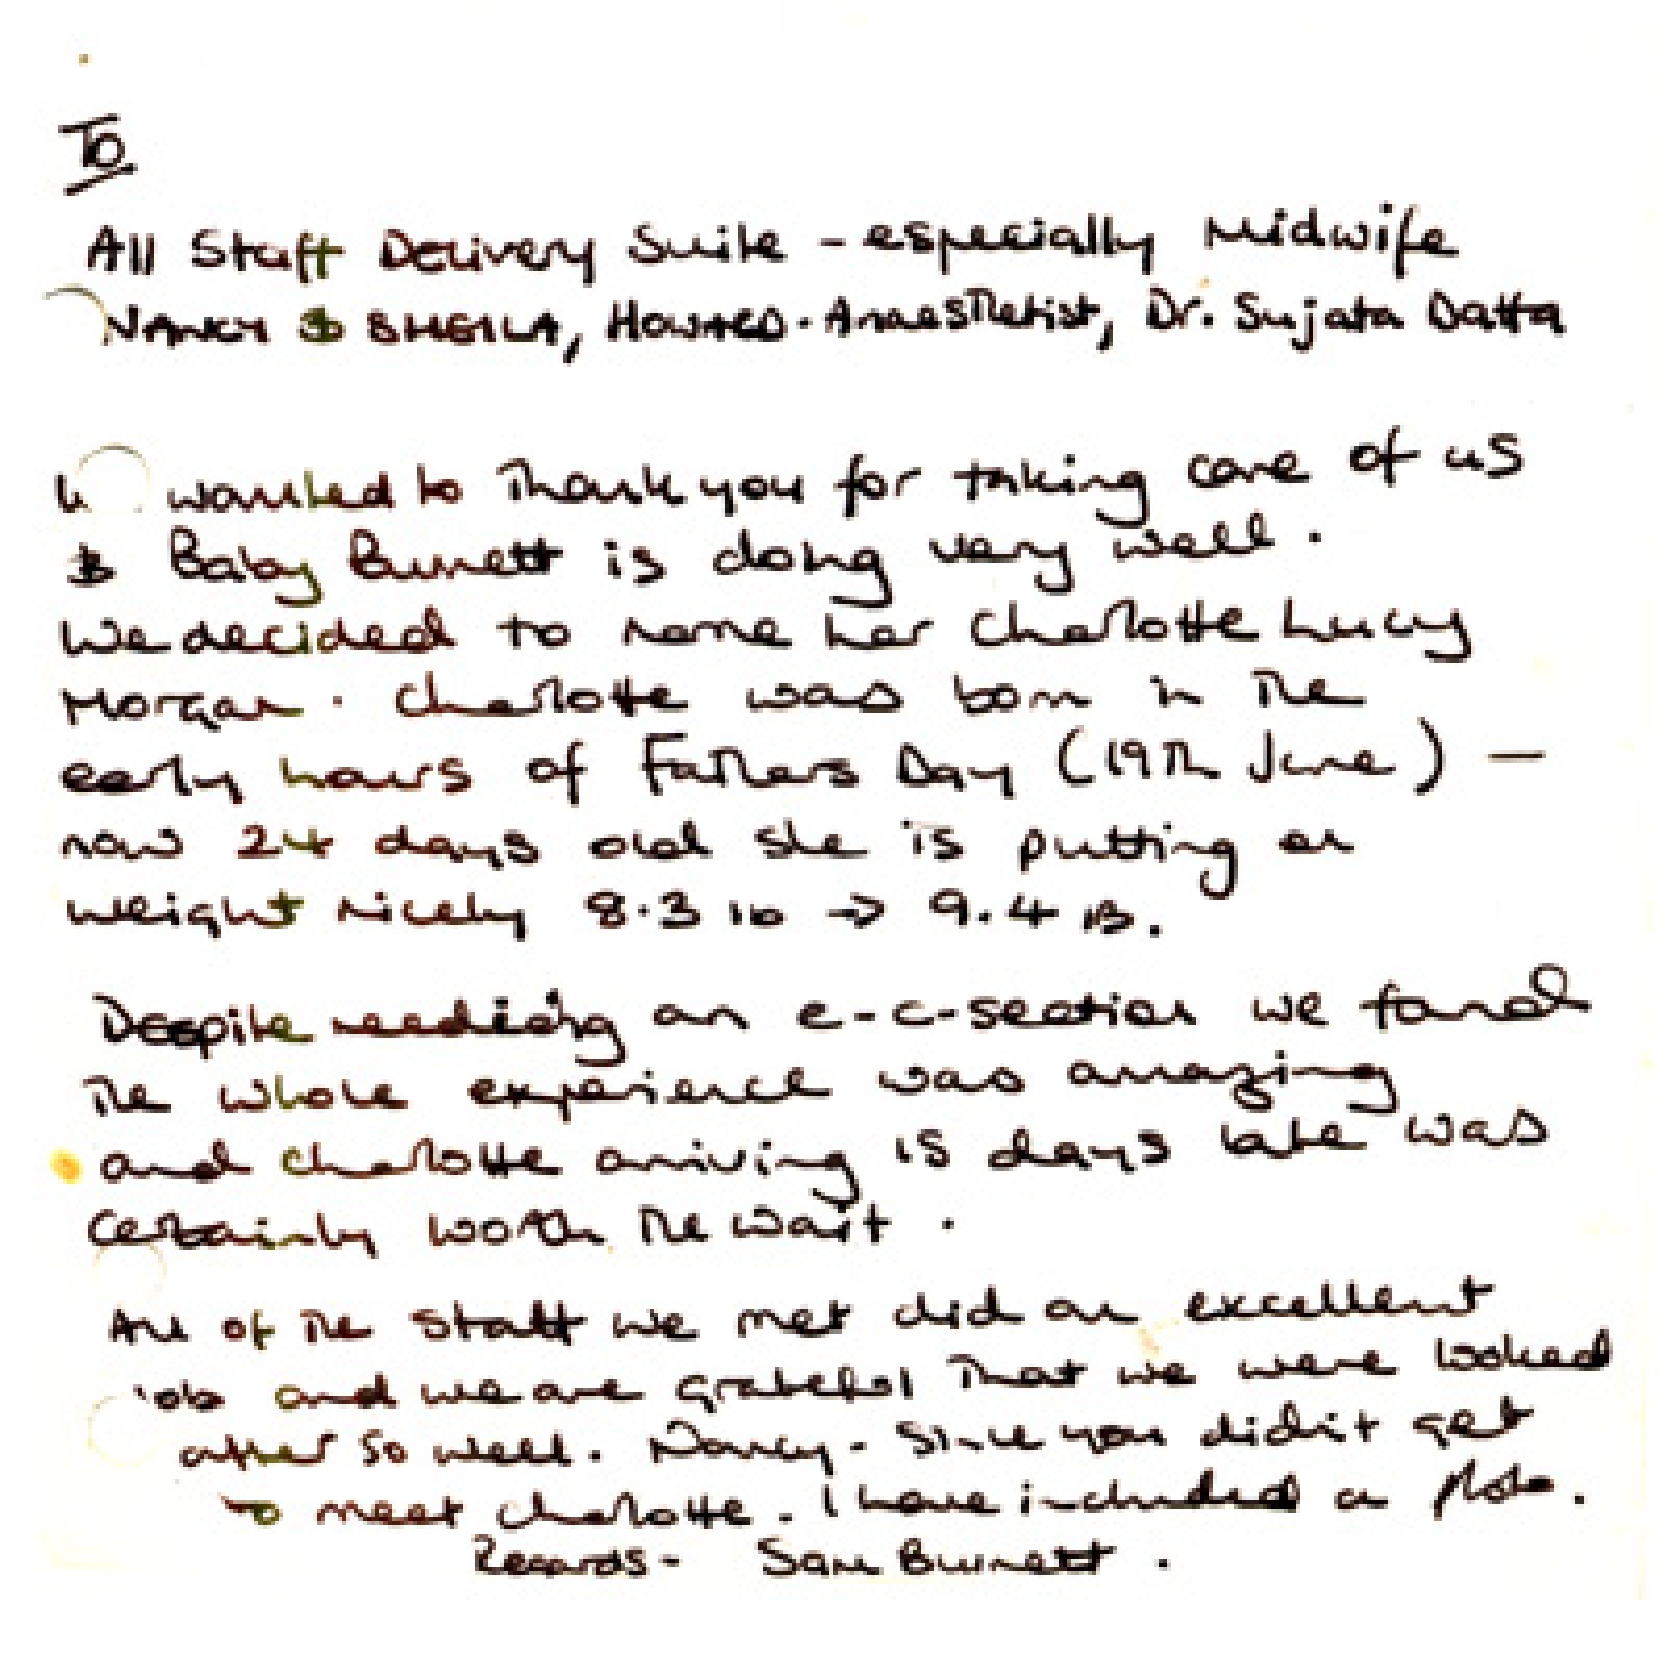 To
All Staff Delivery Suite - especially Midwife
NANCY & SHEILA, HOWARD - Anaesthetist, Dr. Sujata Datta
wanted to Thank you for taking care of us
& Baby Burnett is doing very well.
We decided to name her Charlotte Lucy
Morgan. Charlotte was born in The
early hours of Fathers Day (19Th June) —
now 24 days old she is putting on
weight nicely 8.3 lb → 9.4 lb.
Despite needing an e-c-section we found
The whole experience was amazing
and Charlotte arriving 15 days late was
certainly worth The wait.
All of The staff we met did an excellent
job and we are grateful That we were looked
after so well. Nancy - Since you didn't get
to meet Charlotte. I have included a photo.
Regards - Sam Burnett.